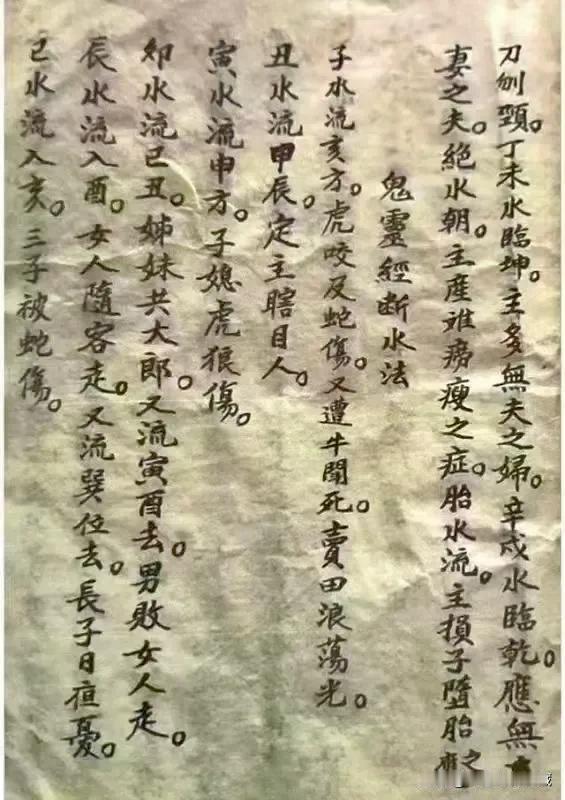 刀刎頸。丁未水臨坤。主多無夫之婦。辛戌水臨乾。應無
妻之夫。絕水朝。主產難癆瘦之症。胎水流。主損子墮胎之應
鬼靈經斷水法
子水流亥方。虎咬及蛇傷。又遭牛鬪死。賣田浪蕩光。
丑水流甲辰。定主瞎目人。
寅水流申方。子媳虎狼傷。
卯水流巳丑。姊妹共大郎。又流寅酉去。男敗女人走。
辰水流入酉。女人隨客走。又流巽位去。長子日疸憂。
巳水流入亥。三子被蛇傷。